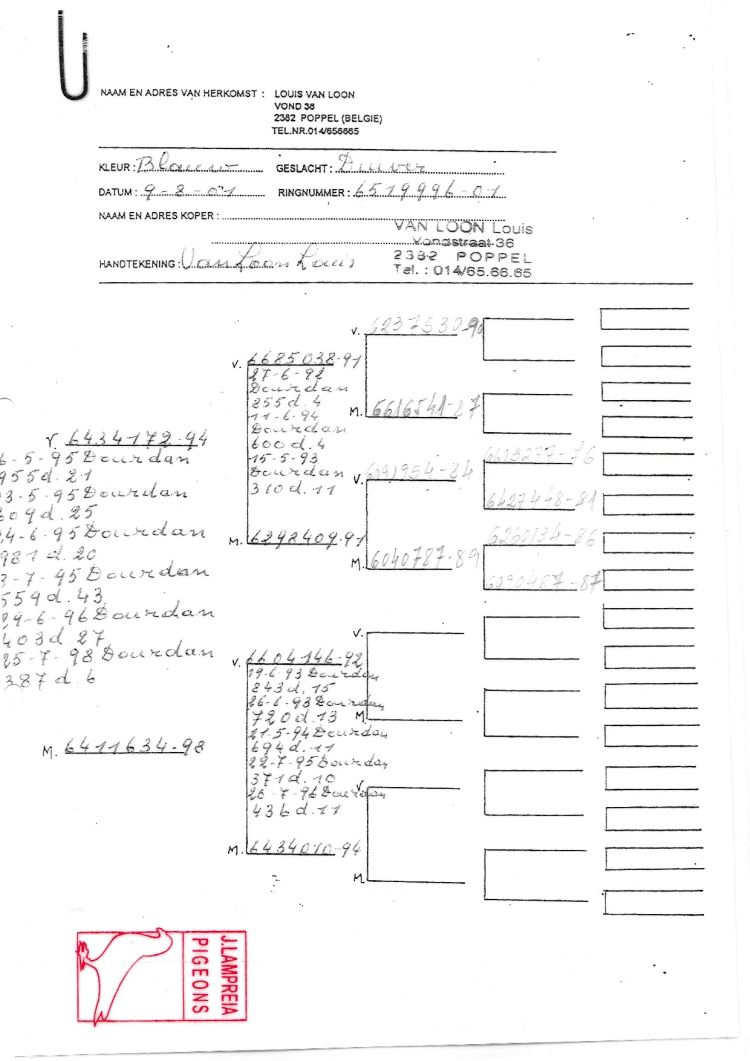 NAAM EN ADRES VAN HERKOMST : LOUIS VAN LOON
VOND 36
2382 POPPEL (BELGIE)
TEL.NR.014/656665
KLEUR : Blauw GESLACHT : Duiver
DATUM : 9-8-01 RINGNUMMER : 6519996-01
NAAM EN ADRES KOPER :
VAN LOON Louis
Vondstraat 36
2382 POPPEL
Tel. : 014/65.66.65
HANDTEKENING : Van Loon Louis
V. 6434172-94
6-5-95 Dourdan
955 d. 21
3-5-95 Dourdan
609 d. 25
4-6-95 Dourdan
981 d. 20
3-7-95 Dourdan
559 d. 43
29-6-96 Dourdan
403 d 27
25-7-98 Dourdan
387 d. 6
M. 6411634-98
V. 6685038-91
27-6-92
Dourdan
255 d. 4
11-6-94
Dourdan
600 d. 4
15-5-93
Dourdan
310 d. 11
M. 6298409-91
V. 6604146-92
19-6 93 Dourdan
243 d. 15
26-6-93 Dourdan
720 d. 13
21-5-94 Dourdan
694 d. 11
22-7-95 Dourdan
371 d. 10
26-7-96 Dourdan
436 d. 11
M. 6434010-94
V. 6237530-90
M. 6616541-87
V. 6091954-84
M. 6040787-89
V.
M
V.
M
6427448-81
6260134-86
6090487-87
J.LAMPREIA
PIGEONS